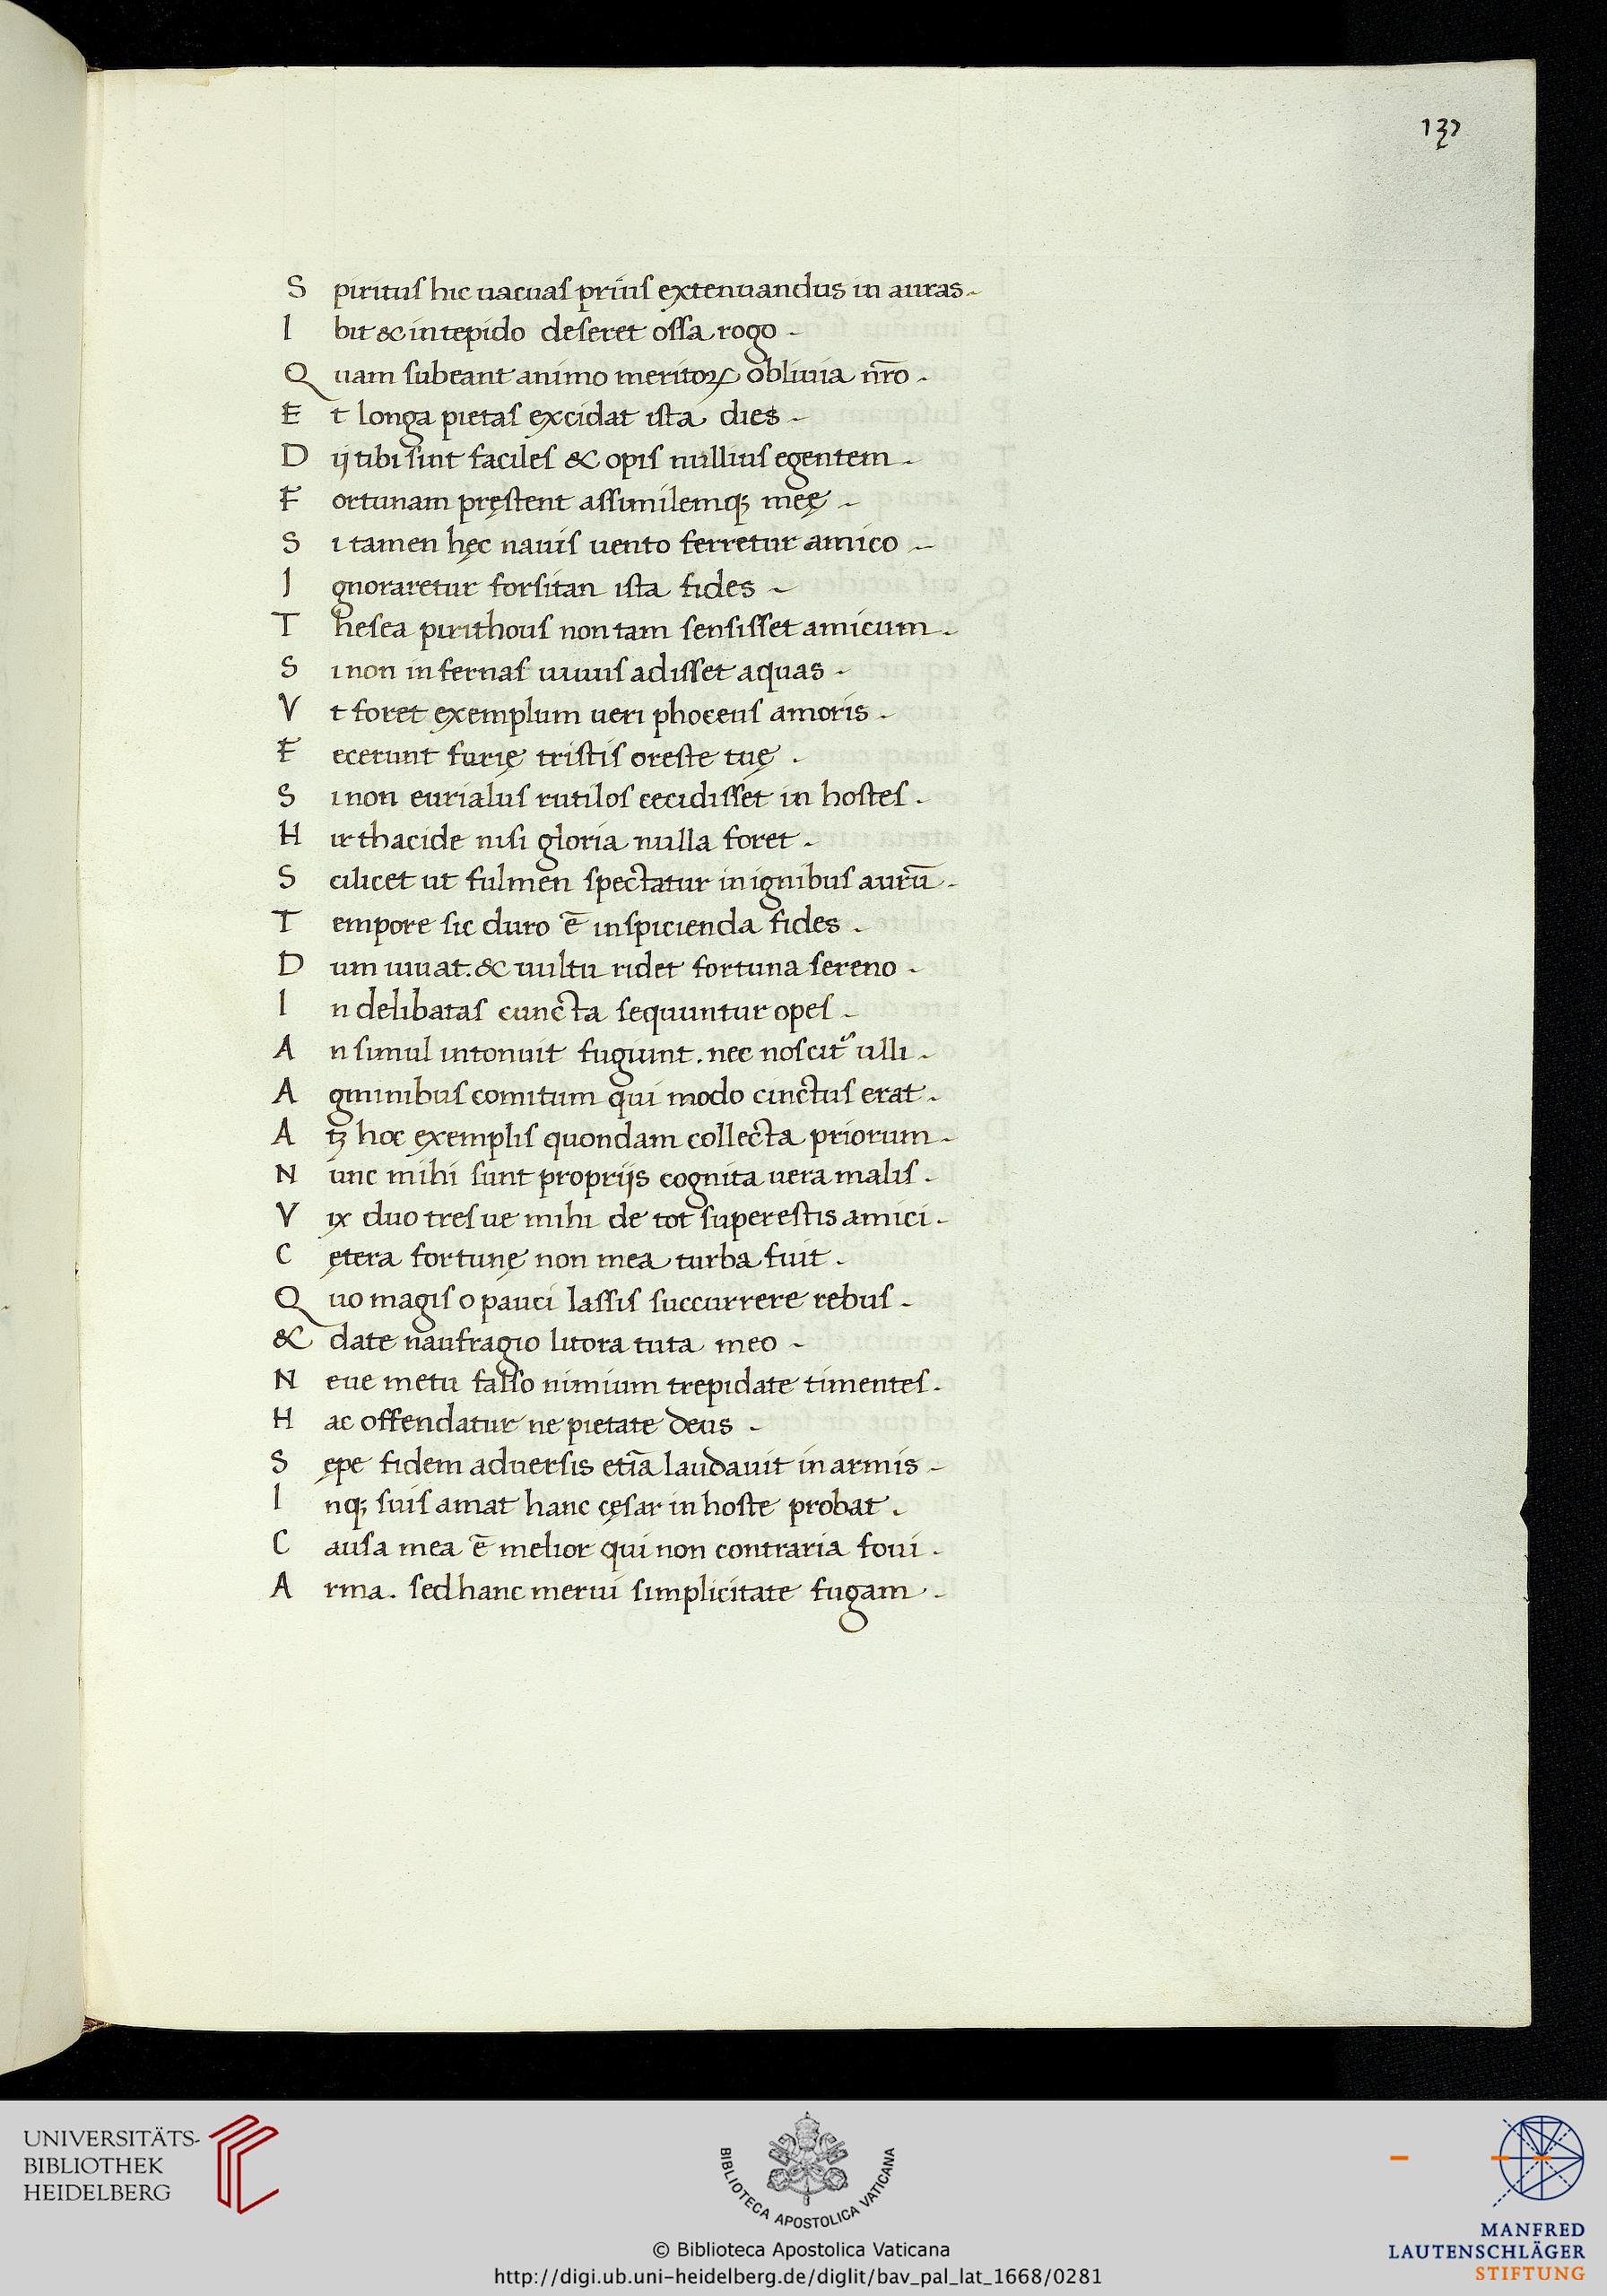 137
Spirituſ hic uacuaſ priuſ extenuandus in auras
Ibit & in tepido deſeret oſſa rogo
Quam ſubeant animo meritoꝝ obliuia nr̄o
Et longa pietaſ excidat iſta dies
Dij tibi ſint facileſ & opiſ nulliuſ egentem
Fortunam pręſtent aſſimilemq; meę
Si tamen hęc nauiſ uento ferretur amico
Ignoraretur forſitan iſta fides
Theſea pirithouſ non tam ſenſiſſet amicum
Si non infernaſ uiuuſ adiſſet aquas
Vt foret exemplum ueri phoceuſ amoris
Fecerunt furię triſtiſ oreſte tuę
Si non eurialuſ rutiloſ cecidiſſet in hoſteſ
Hirthacide niſi gloria nulla foret
Scilicet ut fulmen spectatur in ignibuſ aurū
Tempore ſic duro ē inſpicienda fides
Dum iuuat. & uultu ridet fortuna ſereno
Indelibataſ cuncta ſequuntur opeſ
An ſimul intonuit fugiunt. nec noſcit᷑ ulli
Agminibuſ comitum qui modo cinctuſ erat
Atꝫ hoc exempliſ quondam collecta priorum
Nunc mihi ſunt proprijs cognita uera maliſ
Vix duo treſ ue mihi de tot ſupereſtis amici
Cętera fortunę non mea turba fuit
Quo magiſ o pauci laſſiſ ſuccurrere rebuſ
& date naufragio litora tuta meo
Neue metu falſo nimium trepidate timenteſ
Hac offendatur ne pietate deus
Sępe fidem aduerſis etiā laudauit in armis
Inq; ſuiſ amat hanc cęſar in hoſte probat
Cauſa mea ē melior qui non contraria foui
Arma. ſed hanc merui ſimplicitate fugam
UNIVERSITÄTS-
BIBLIOTHEK
HEIDELBERG
BIBLIOTECA APOSTOLICA VATICANA
© Biblioteca Apostolica Vaticana
http://digi.ub.uni-heidelberg.de/diglit/bav_pal_lat_1668/0281
MANFRED
LAUTENSCHLÄGER
STIFTUNG